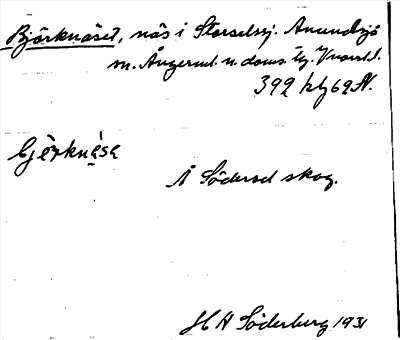 Björknäset, näs i Storselssj. Anundsjö
sn. Ångerml. n. doms. tg. Vnorrl. l.
399 kbl 69 N.
bjèrknése
Å Södersel skog.
H H Söderberg 1931